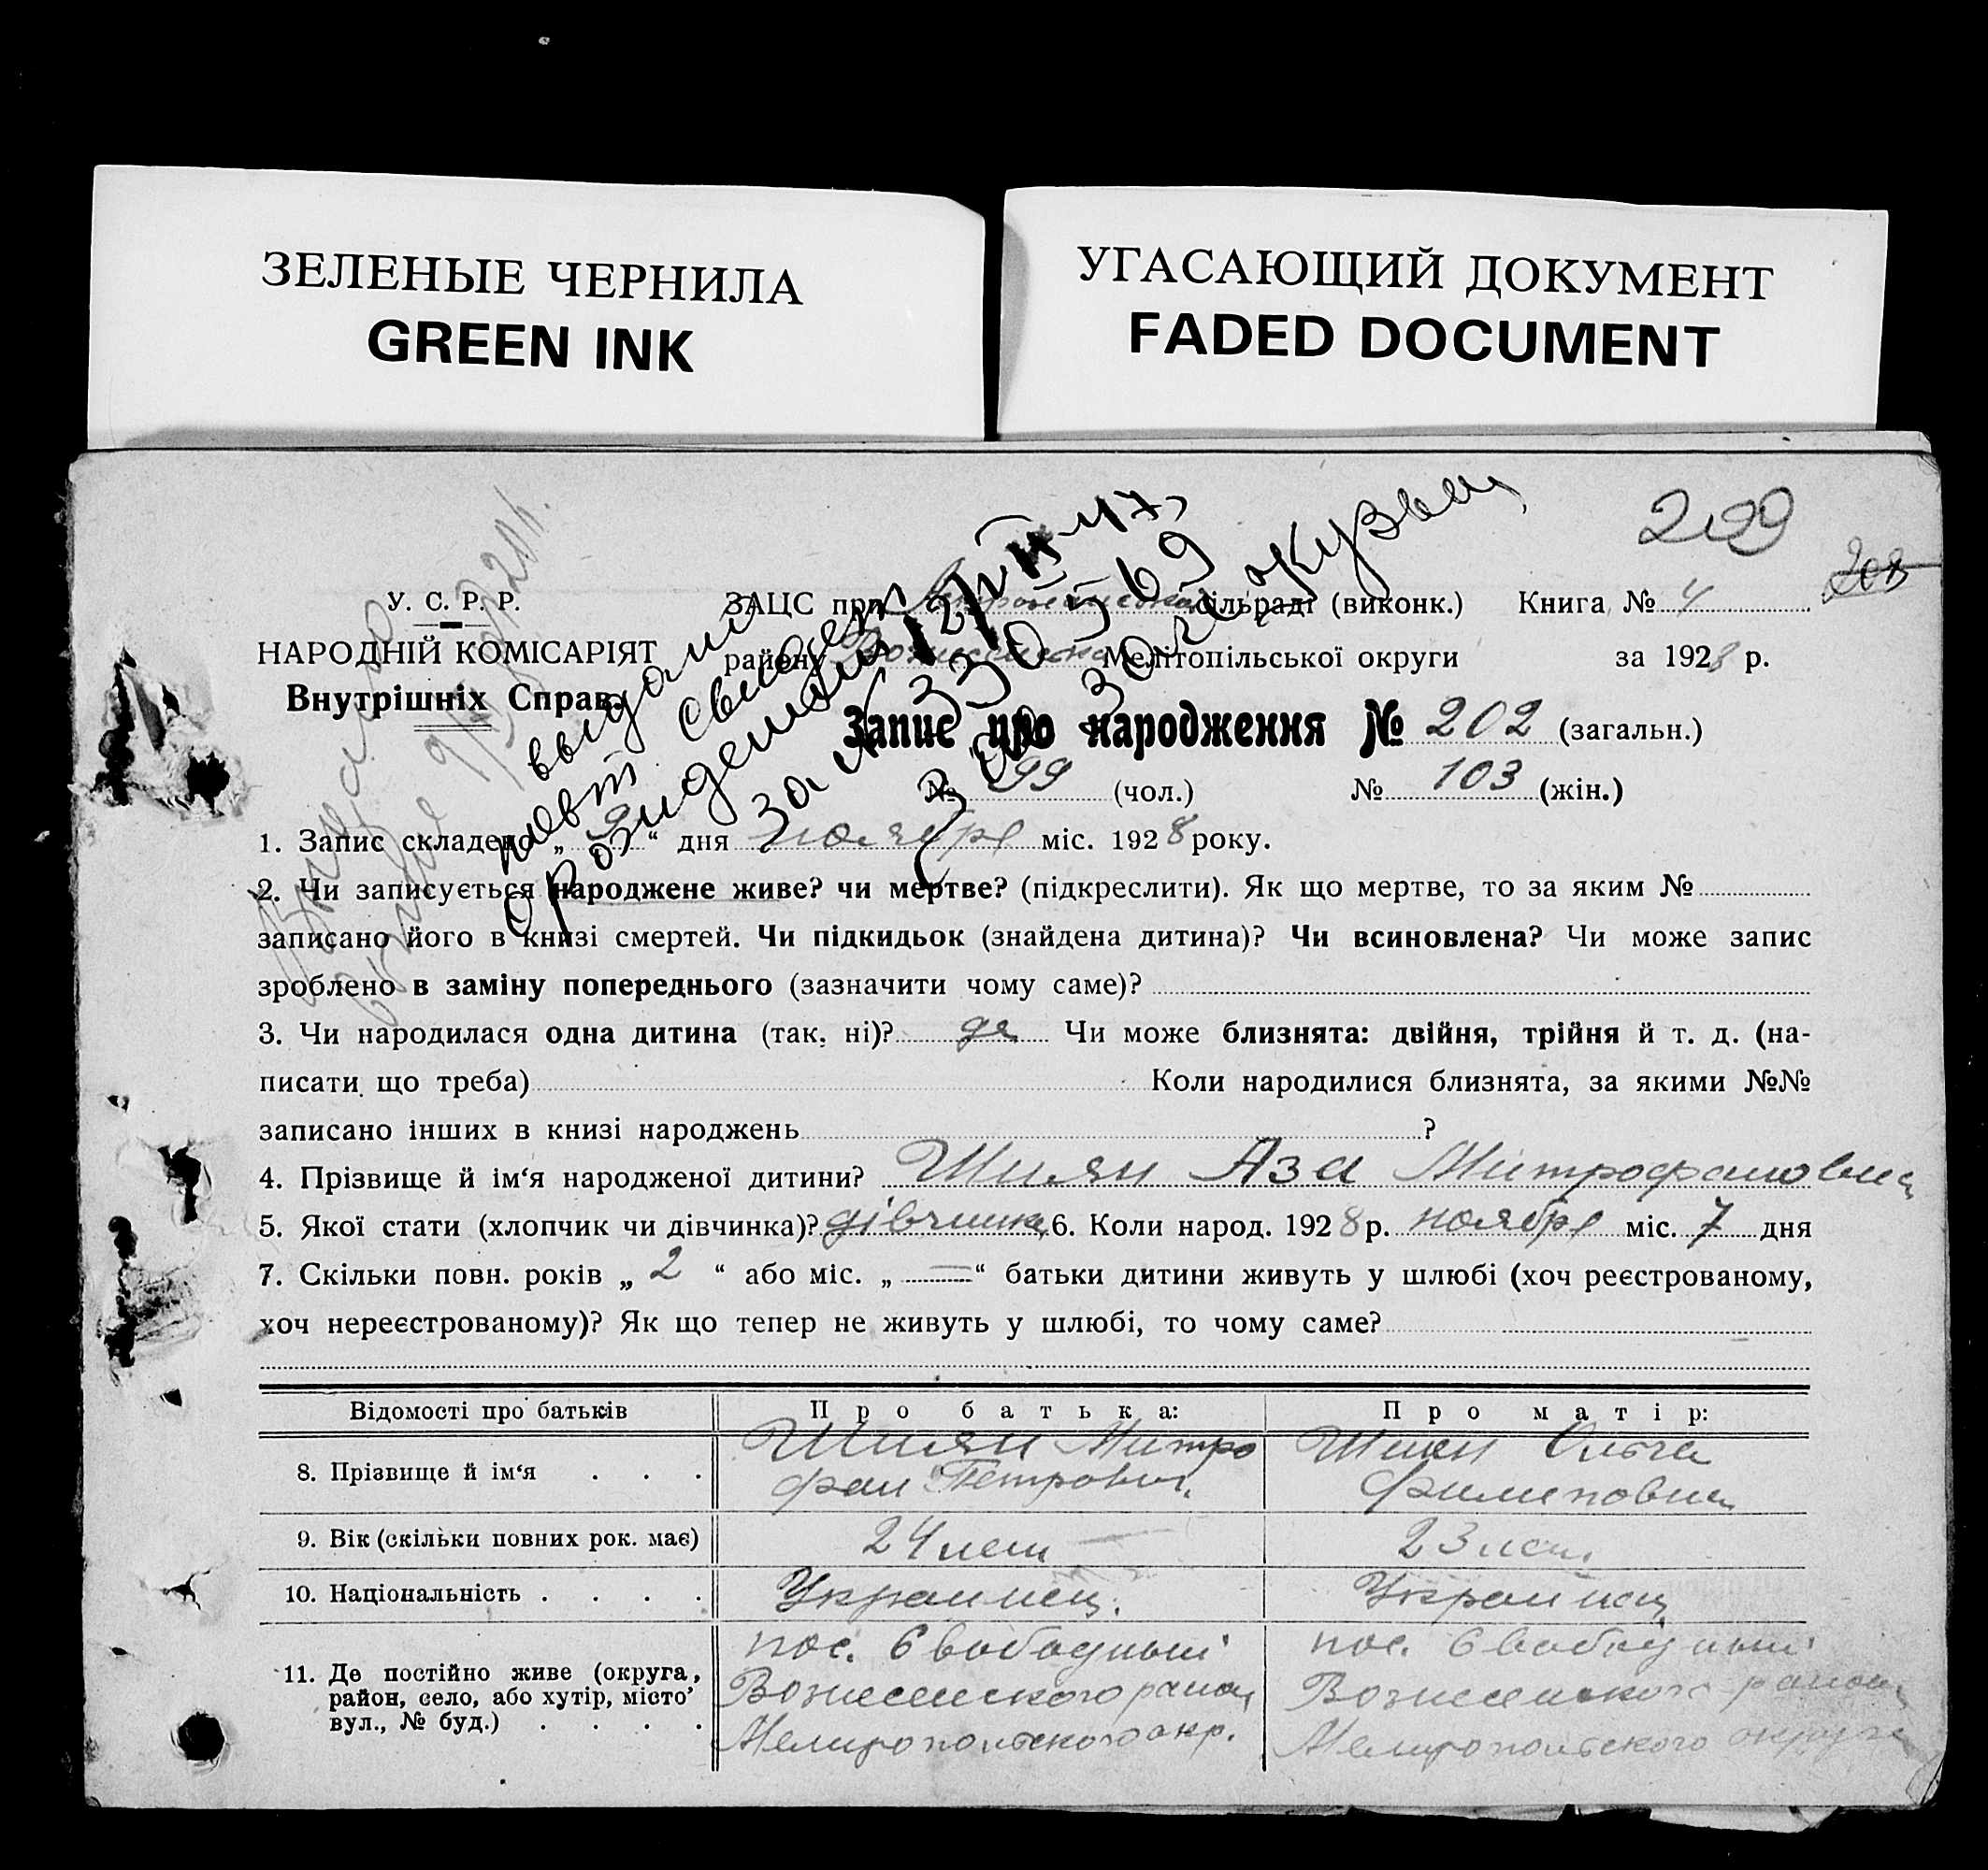 ЗЕЛЕНЫЕ ЧЕРНИЛА
GREEN INK
УГАСАЮЩИЙ ДОКУМЕНТ
FADED DOCUMENT
299
203
выдано
повт свидет
о рождении 12/VI 47
за № 330569
У. С. Р. Р.
НАРОДНІЙ КОМІСАРІЯТ
Внутрішніх Справ.
ЗАЦС при сільраді (виконк.) Книга № 4
району Мелітопільської округи за 1928 р.
Запис про народження № 202 (загальн.)
№ 99 (чол.) № 103 (жін.)
1. Запис складено „ 9 “ дня ноября міс. 1928 року.
2. Чи записується народжене живе? чи мертве? (підкреслити). Як що мертве, то за яким №
записано його в книзі смертей. Чи підкидьок (знайдена дитина)? Чи всиновлена? Чи може запис
зроблено в заміну попереднього (зазначити чому саме)?
3. Чи народилася одна дитина (так, ні)? да Чи може близнята: двійня, трійня й т. д. (на-
писати що треба) Коли народилися близнята, за якими №№
записано інших в книзі народжень ?
4. Прізвище й ім‘я народженої дитини? Шиян Аза Митрофановна
5. Якої стати (хлопчик чи дівчинка)? дівчинка 6. Коли народ. 1928 р. ноября міс. 7 дня
7. Скільки повн. років „ 2 “ або міс. „ — “ батьки дитини живуть у шлюбі (хоч реєстрованому,
хоч нереєстрованому)? Як що тепер не живуть у шлюбі, то чому саме?
Відомості про батьків Про батька: Про матір:
8. Прізвище й ім‘я . . . Шиян Митро Шиян Ольга
фан Петрович Филиповна
9. Вік (скільки повних рок. має) 24 лет 23 лет
10. Національність . . . . Украинец. Украинец
11. Де постійно живе (округа, район, село, або хутір, місто, вул., № буд.) . . . .
пос. Свободный пос. Свободный
Вознесенского района Вознесенского района
Мелитопольского окр. Мелитопольского округа